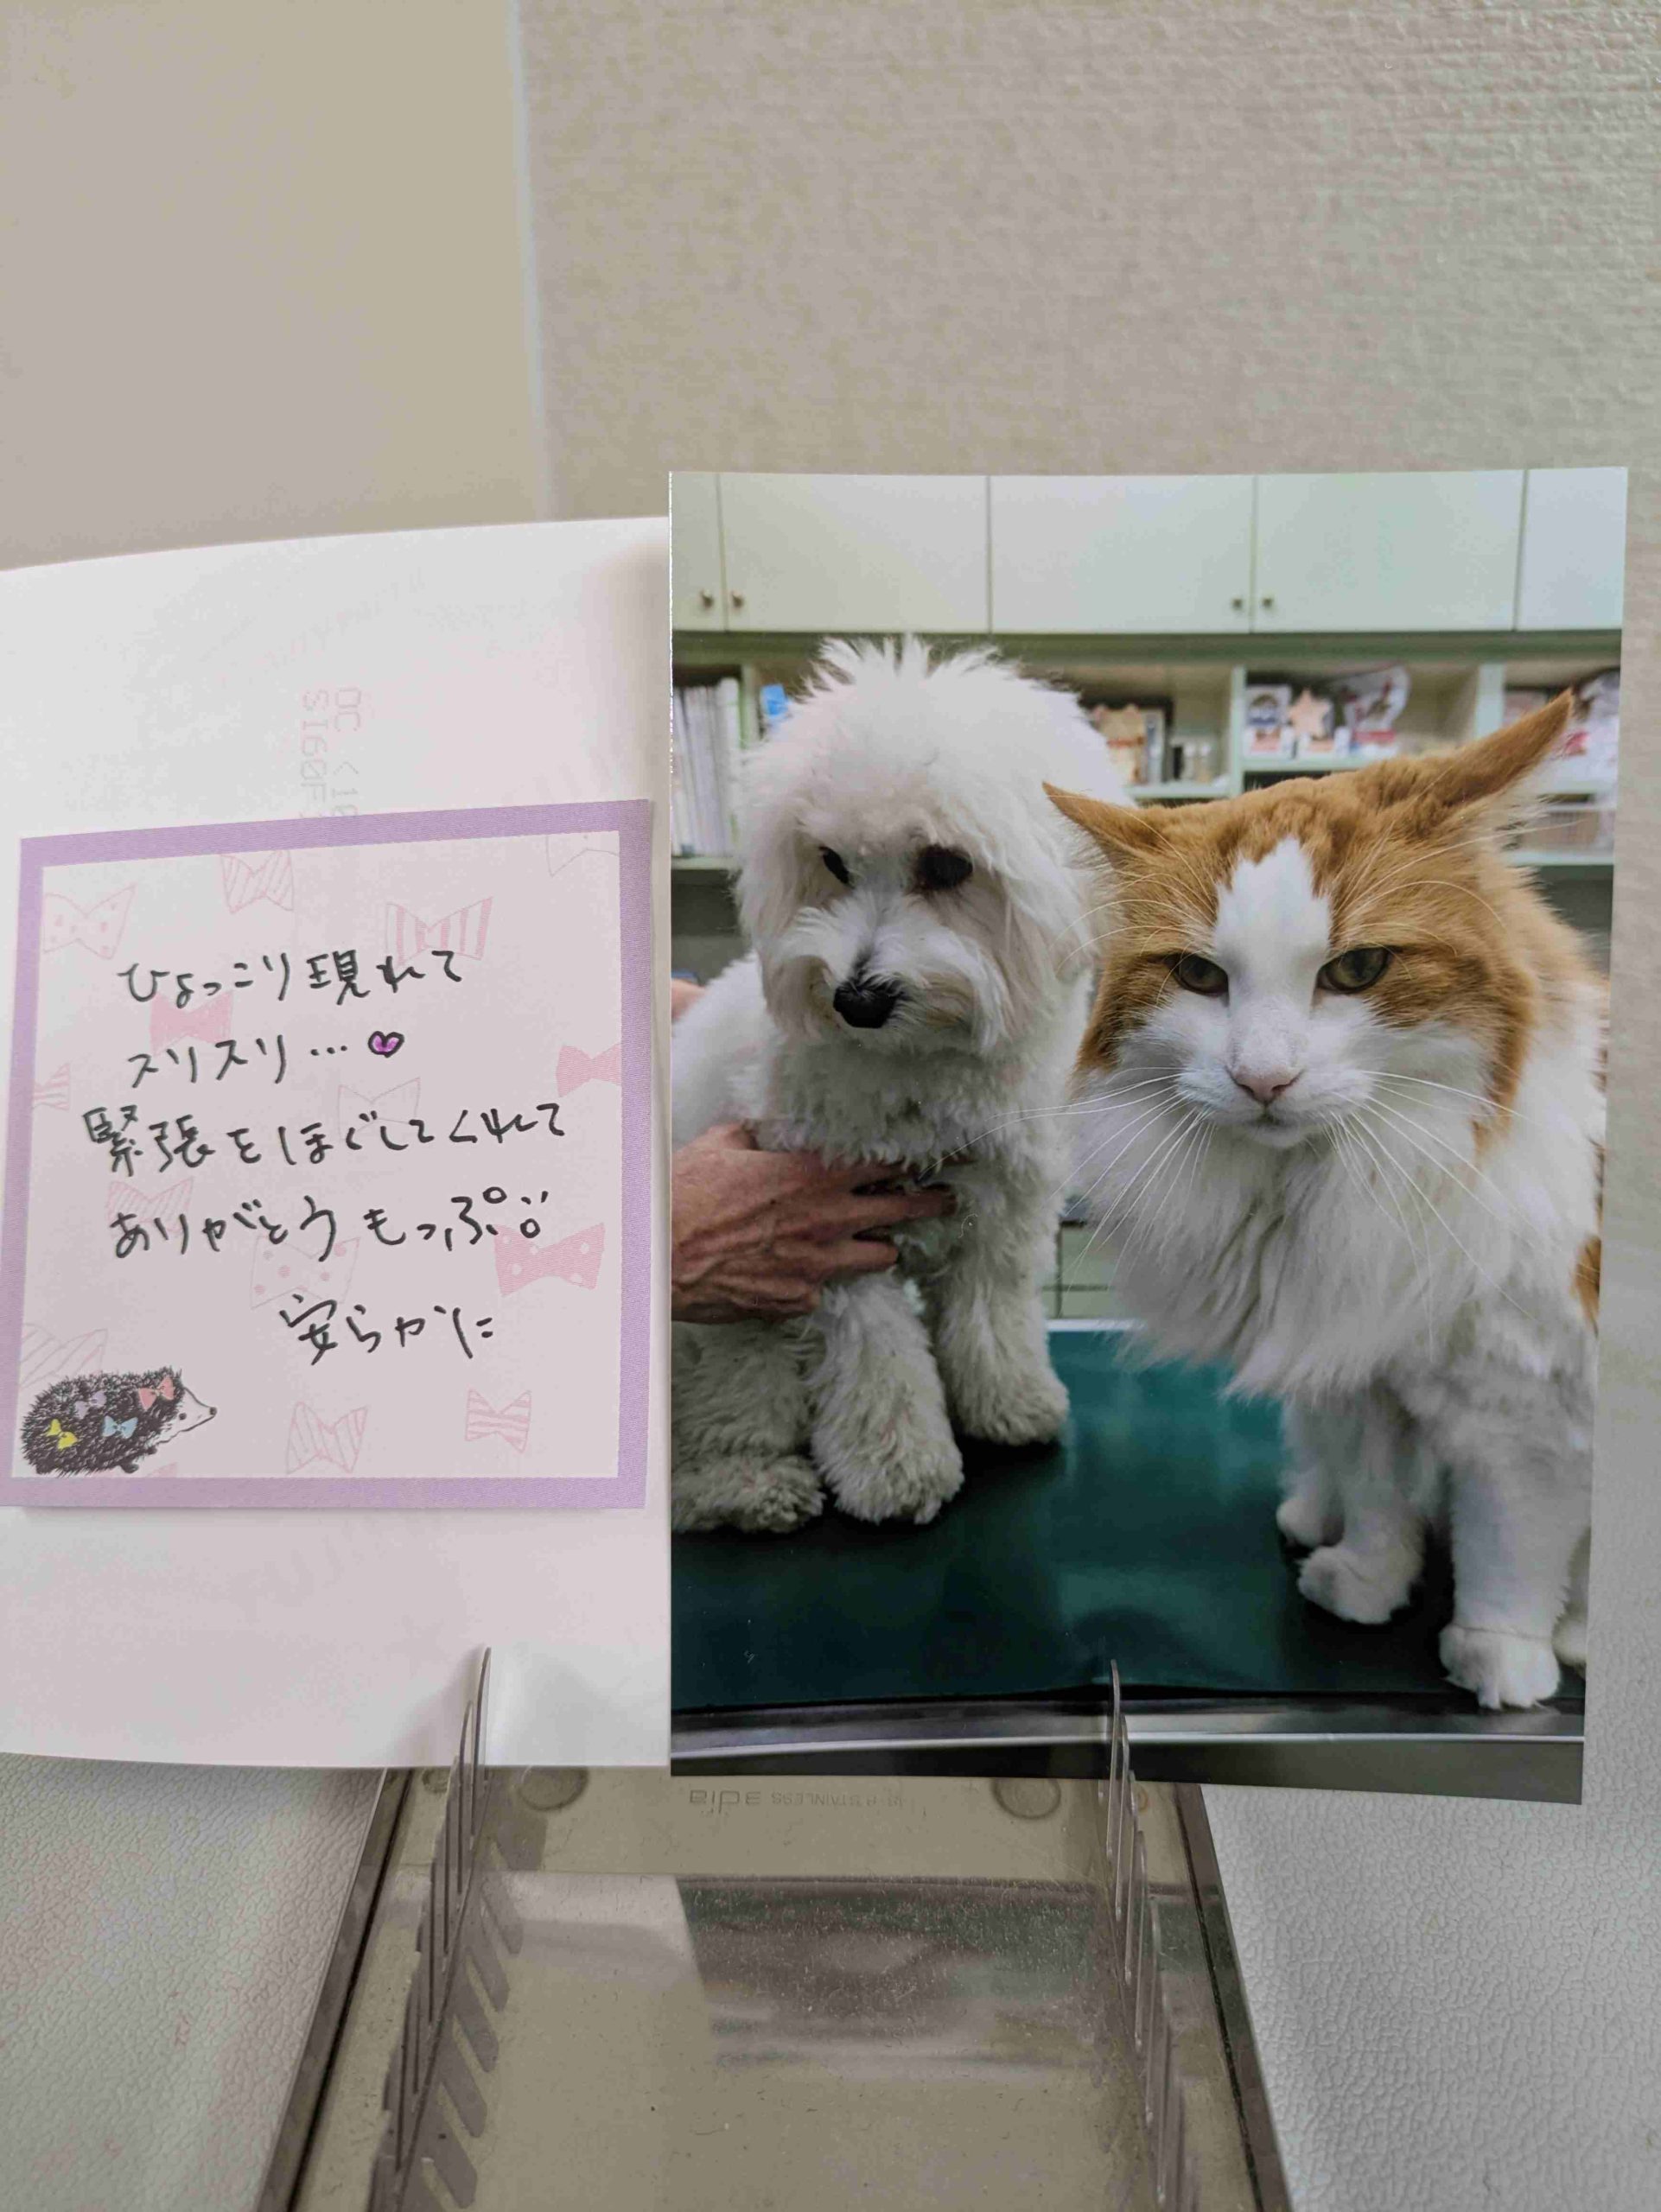 ひょっこり現れて
スリスリ…♡
緊張をほぐしてくれて
ありがとうもっぷ
安らかに
STAINLESS edia